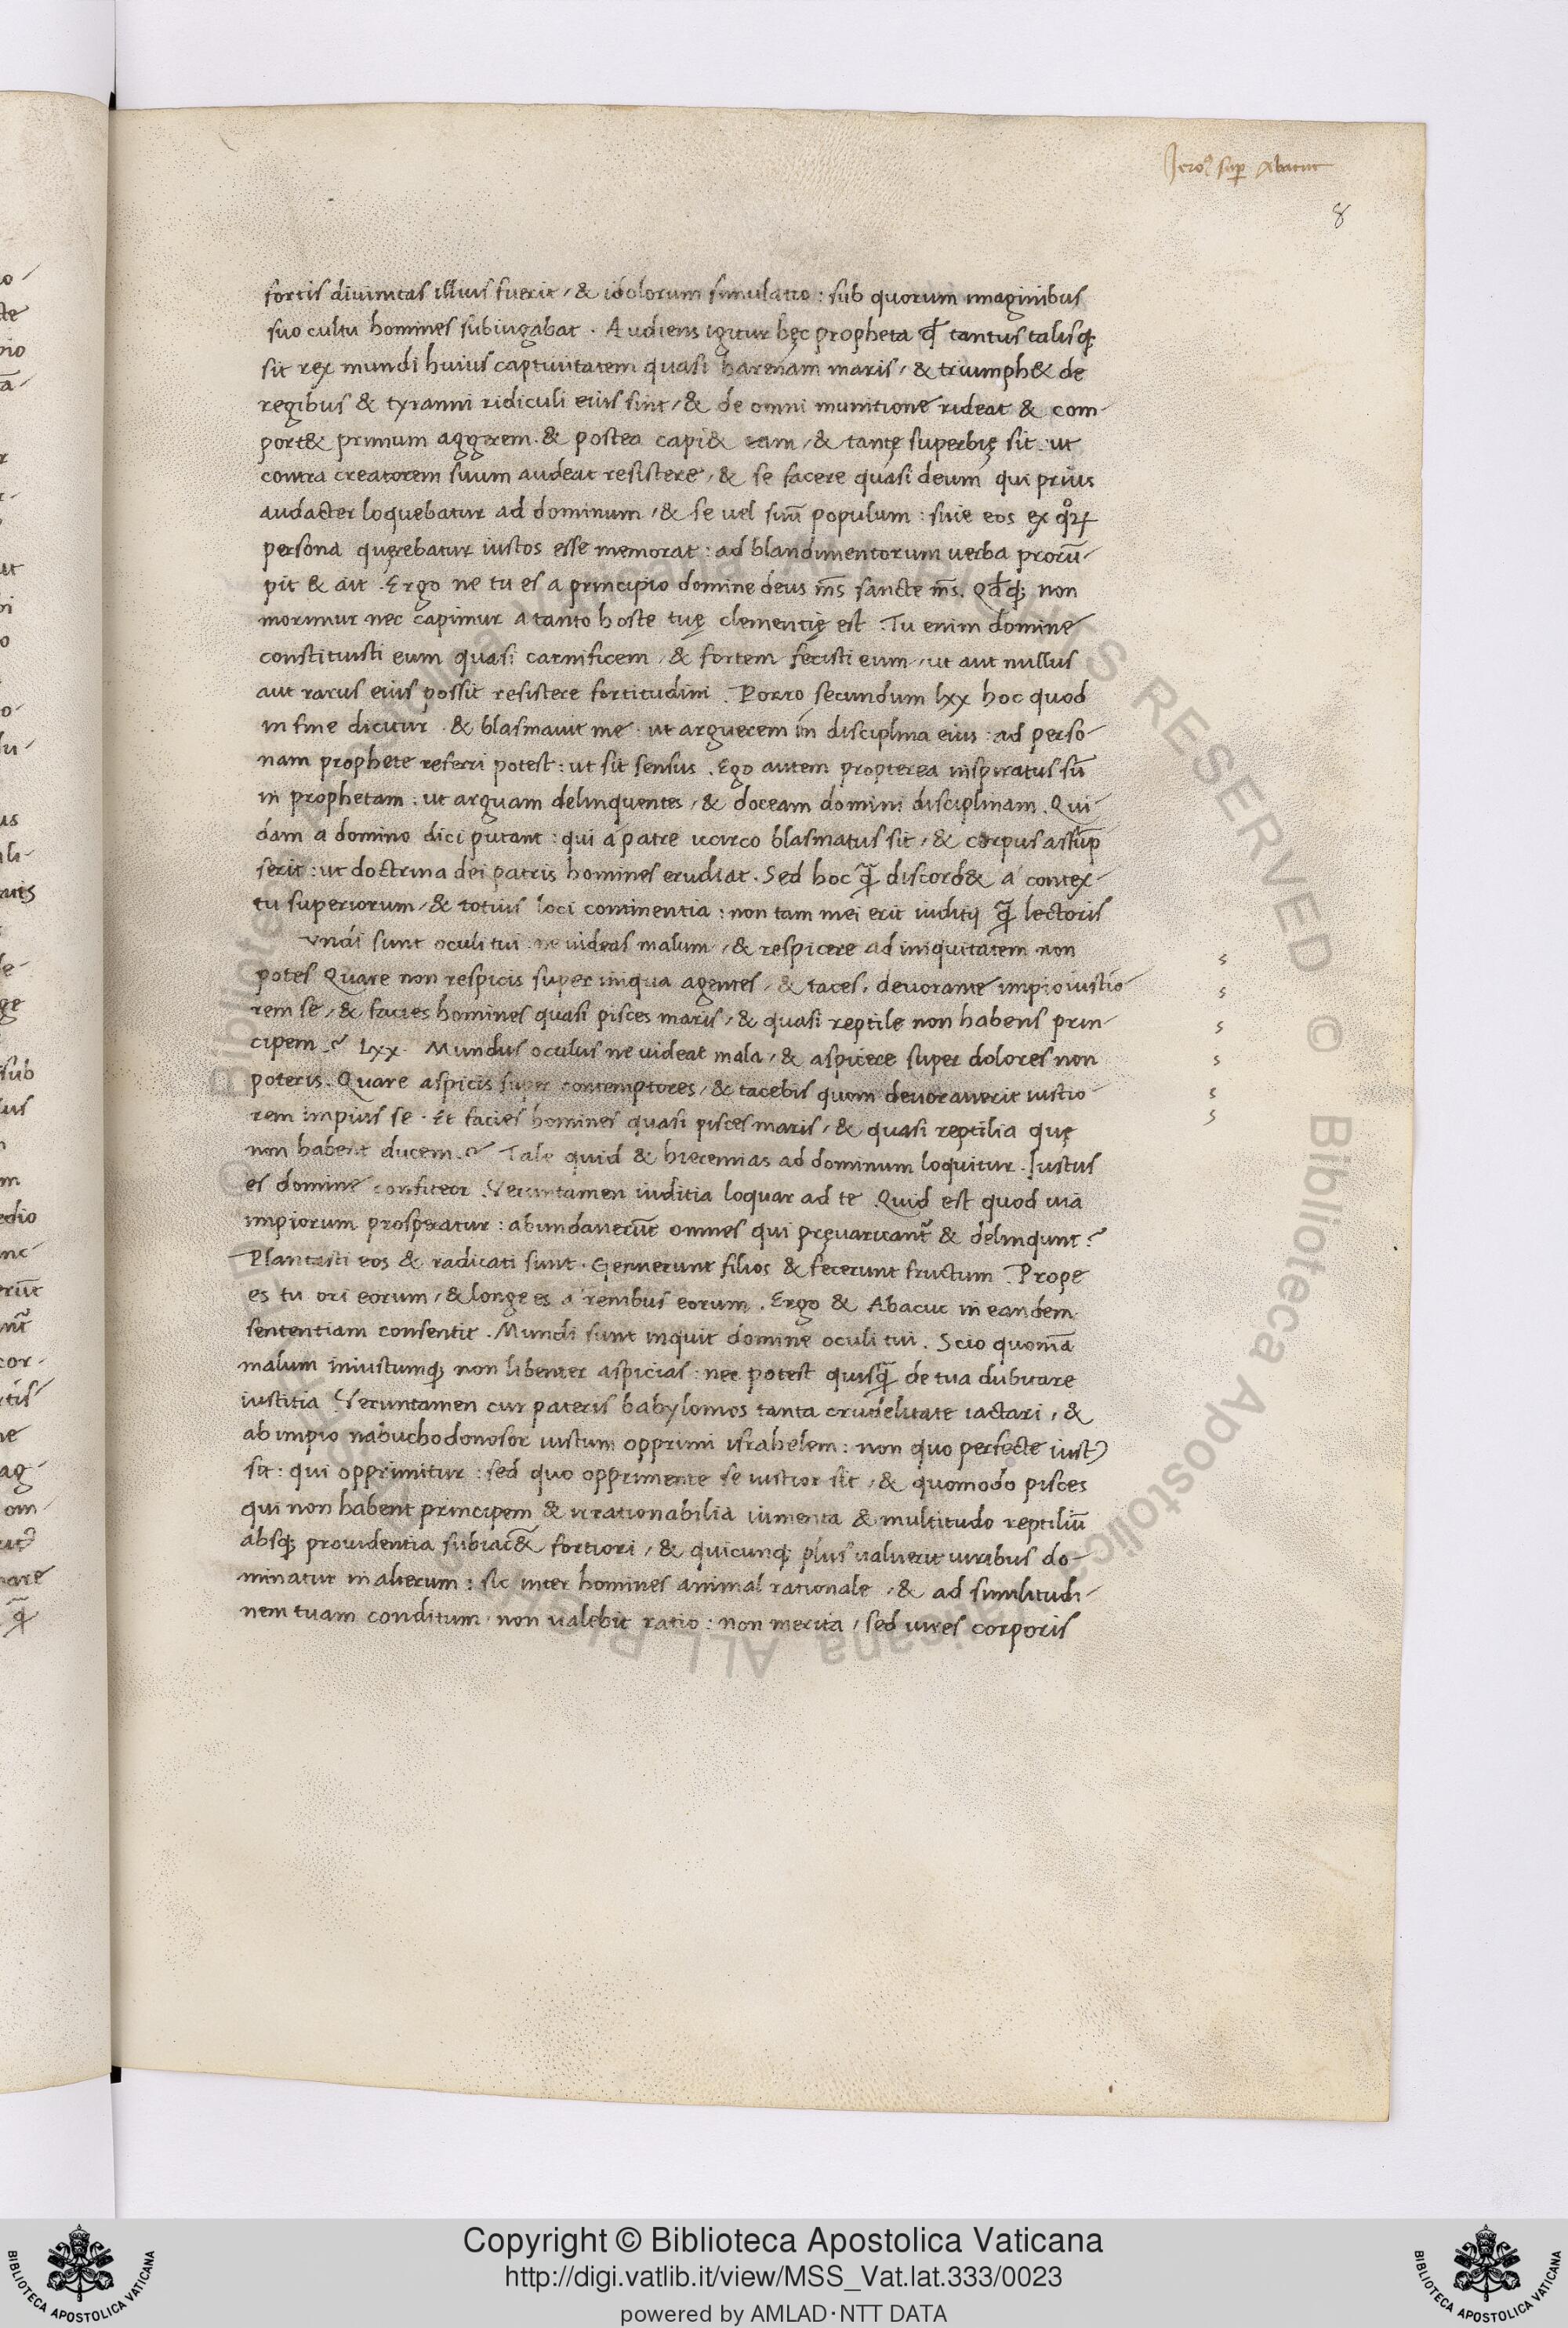 Jero͂ sup̱ Abacuc
8
fortis diuinitas illius fuerit, & idolorum simulatio: sub quorum imaginibus
suo cultu homines subiugabat. Audiens igitur hęc propheta ꝙ tantus talisq;
sit rex mundi huius captiuitatem quasi harenam maris, & triumph& de
regibus & tyranni ridiculi eius sint, & de omni munitione rideat & com-
port& primum aggerem. & postea capi& eam, & tantę superbię sit. ut
contra creatorem suum audeat resistere, & se facere quasi deum qui prius
audacter loquebatur ad dominum, & se uel suū populum: siue eos ex quoꝝ
persona querebatur iustos esse memorat: ad blandimentorum uerba prorū-
pit & ait. Ergo ne tu es a principio domine deus m̄s sancte m̄s. Qđq; non
morimur nec capimur a tanto hoste tuę clementię est. Tu enim domine
constituisti eum quasi carnificem, & fortem fecisti eum, ut aut nullus
aut rarus eius possit resistere fortitudini. Porro secundum lxx hoc quod
in fine dicitur. & blasmauit me. ut arguerem in disciplina eius: ad perso-
nam prophete referri potest: ut sit sensus. Ego autem propterea inspiratus sū
in prophetam: ut arguam delinquentes, & doceam domini disciplinam. Qui-
dam a domino dici putant: qui a patre iccirco blasmatus sit, & corpus assūp
serit: ut doctrina dei patris homines erudiat. Sed hoc q̄ discord& a contex-
tu superiorum, & totius loci continentia: non tam mei erit iuditij q̄ lectoris
undi sunt oculi tui. ne uideas malum, & respicere ad iniquitatem non
potes Quare non respicis super iniqua agentes, & taces, deuorante impio iustio
rem se, & facies homines quasi pisces maris, & quasi reptile non habens prin-
cipem.? Lxx. Mundus oculus ne uideat mala, & aspicere super dolores non
poteris. Quare aspicis super contemptores, & tacebis quom deuorauerit iustio-
rem impius se. Et facies homines quasi pisces maris, & quasi reptilia quę
non habent ducem.? Tale quid & hieremias ad dominum loquitur. Iustus
es domine confiteor. Veruntamen iuditia loquar ad te. Quid est quod uia
impiorum prosperatur: abundauerūt omnes qui pręuaricant̄ & delinqunt?
Plantasti eos & radicati sunt. Genuerunt filios & fecerunt fructum. Prope
es tu ori eorum, & longe es a renibus eorum. Ergo & Abacuc in eandem
sententiam consentit. Mundi sunt inquit domine oculi tui. Scio quoniā
malum iniustumq; non libenter aspicias: nec potest quisq̄ de tua dubitare
iustitia Veruntamen cur pateris babylonios tanta crudelitate iactari, &
ab impio nabuchodonosor iustum opprimi israhelem: non quo perfecte iustꝰ
sit: qui opprimitur: sed quo opprimente se iustior sit, & quomodo pisces
qui non habent principem & irrationabilia iumenta & multitudo reptiliū
absq; prouidentia subiac& fortiori, & quicunq; plus ualuerit uiribus do-
minatur in alterum: sic inter homines animal rationale, & ad similitudi-
nem tuam conditum. non ualebit ratio: non merita, sed uires corporis
Copyright © Biblioteca Apostolica Vaticana
http://digi.vatlib.it/view/MSS_Vat.lat.333/0023
powered by AMLAD·NTT DATA
BIBLIOTECA APOSTOLICA VATICANA
BIBLIOTECA APOSTOLICA VATICANA